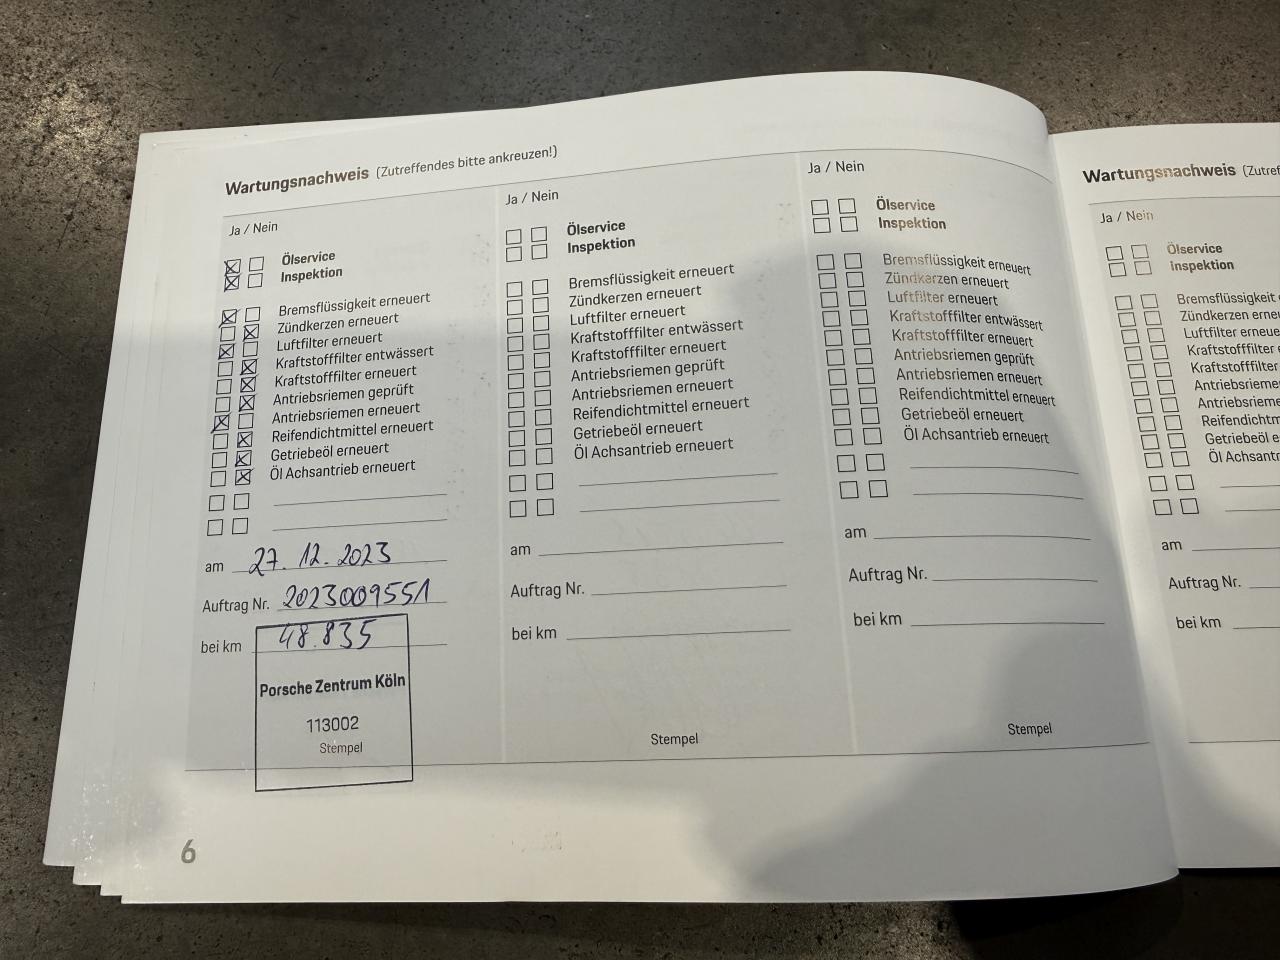 Wartungsnachweis (Zutreffendes bitte ankreuzen!)
Ja / Nein
Ölservice
Inspektion
Bremsflüssigkeit erneuert
Zündkerzen erneuert
Luftfilter erneuert
Kraftstofffilter entwässert
Kraftstofffilter erneuert
Antriebsriemen geprüft
Antriebsriemen erneuert
Reifendichtmittel erneuert
Getriebeöl erneuert
Öl Achsantrieb erneuert
am 27.12.2023
Auftrag Nr. 2023009551
bei km 48.835
Porsche Zentrum Köln
113002
Stempel
Ja / Nein
Ölservice
Inspektion
Bremsflüssigkeit erneuert
Zündkerzen erneuert
Luftfilter erneuert
Kraftstofffilter entwässert
Kraftstofffilter erneuert
Antriebsriemen geprüft
Antriebsriemen erneuert
Reifendichtmittel erneuert
Getriebeöl erneuert
Öl Achsantrieb erneuert
am
Auftrag Nr.
bei km
Stempel
Ja / Nein
Ölservice
Inspektion
Bremsflüssigkeit erneuert
Zündkerzen erneuert
Luftfilter erneuert
Kraftstofffilter entwässert
Kraftstofffilter erneuert
Antriebsriemen geprüft
Antriebsriemen erneuert
Reifendichtmittel erneuert
Getriebeöl erneuert
Öl Achsantrieb erneuert
am
Auftrag Nr.
bei km
Stempel
6
Wartungsnachweis
Ja / Nein
Ölservice
Inspektion
Bremsflüssigkeit
Zündkerzen
Luftfilter
Kraftstofffilter
Kraftstofffilter
Antriebsriemen
Antriebsriemen
Getriebeöl
Öl
am
Auftrag Nr.
bei km